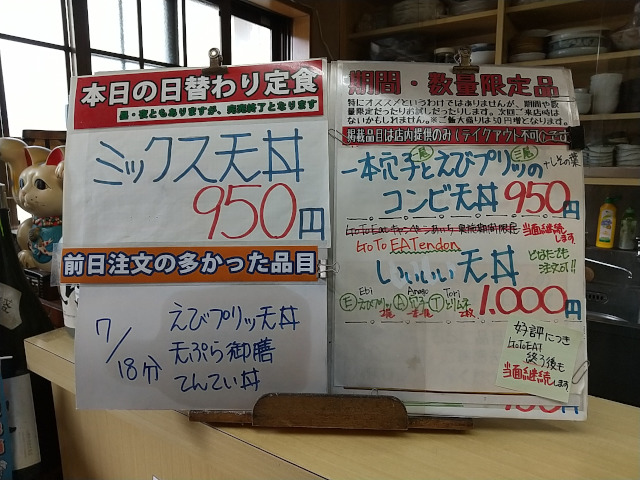 本日の日替わり定食
昼・夜ともありますが、完売終了となります
ミックス天丼
950円
前日注文の多かった品目
7/18分
えびプリッ天丼
天ぷら御膳
てんてい丼
期間・数量限定品
特にオススメというわけではありませんが、期間や数
量限定だったりお試しだったりします。次回ご来店時は
ないかもしれません。※ご飯大盛りは50円増となります
掲載品目は店内提供のみ(テイクアウト不可)です
一本穴子とえびプリッの
+しその葉
コンビ天丼 950円
当面継続
します。
GoTo EATendon
どなたでも
注文可!!
いいいい天丼
Ebi Anago Tori
Ⓔえびプリッ Ⓐ穴子 Ⓣとりムネ
1,000円
好評につき
GoToEAT
終了後も
当面継続します